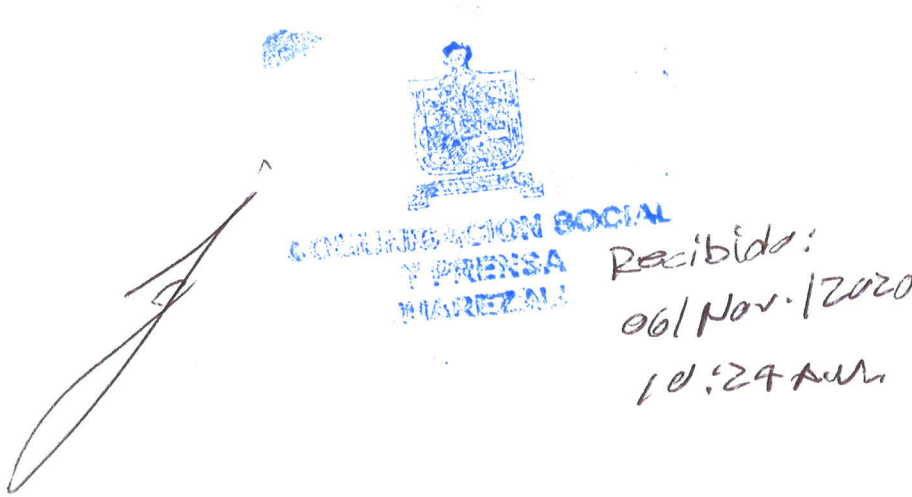 COMUNICACION SOCIAL
Y PRENSA
JUAREZ N.L.
Recibido:
06/Nov./2020
10:24 A.M.